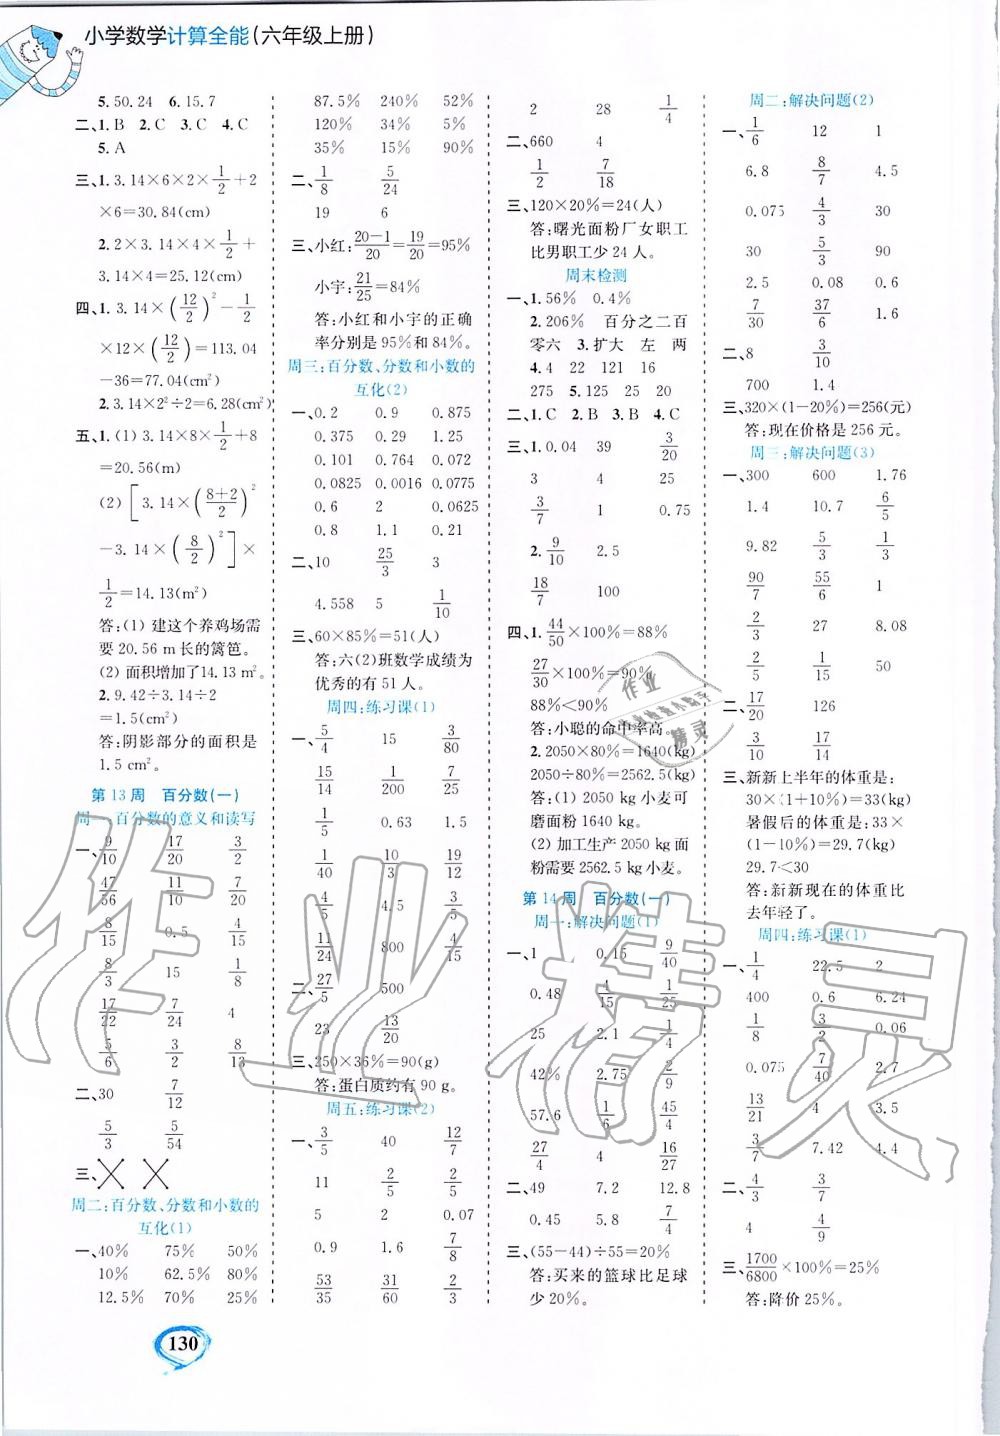 小学数学计算全能(六年级上册)
5. 50.24 6. 15.7
二、1. B 2. C 3. C 4. C
5. A
三、1. 3.14×6×2×1/2+2
×6=30.84(cm)
2. 2×3.14×4×1/2+
3.14×4=25.12(cm)
四、1. 3.14×(12/2)²-1/2
×12×(12/2)=113.04
-36=77.04(cm²)
2. 3.14×2²÷2=6.28(cm²)
五、1. (1) 3.14×8×1/2+8
=20.56(m)
(2) [3.14×((8+2)/2)²
-3.14×(8/2)²]×
1/2=14.13(m²)
答:(1) 建这个养鸡场需
要 20.56 m 长的篱笆。
(2) 面积增加了14.13 m²。
2. 9.42÷3.14÷2
=1.5(cm²)
答:阴影部分的面积是
1.5 cm²。
第 13 周 百分数(一)
周一:百分数的意义和读写
一、9/10 17/20 3/2
47/56 11/10 7/20
8/15 0.5 4/15
8/3 15 1/8
17/22 7/24 4
5/6 3/2 8/13
二、30 7/12
5/3 5/54
三、
周二:百分数、分数和小数的
互化(1)
一、40% 75% 50%
10% 62.5% 80%
12.5% 70% 25%
87.5% 240% 52%
120% 34% 5%
35% 15% 90%
二、1/8 5/24
19 6
三、小红:(20-1)/20=19/20=95%
小宇:21/25=84%
答:小红和小宇的正确
率分别是 95%和 84%。
周三:百分数、分数和小数的
互化(2)
一、0.2 0.9 0.875
0.375 0.29 1.25
0.101 0.764 0.072
0.0825 0.0016 0.0775
0.6 2 0.0625
0.8 1.1 0.21
二、10 25/3 3
4.558 5 1/10
三、60×85%=51(人)
答:六(2)班数学成绩为
优秀的有 51 人。
周四:练习课(1)
一、5/4 15 3/80
15/14 1/200 25
1/5 0.63 1.5
1/40 10/3 19/12
4/5 4.5 3/5
11/24 800 4
二、27/5 500
23 13/20
三、250×36%=90(g)
答:蛋白质约有 90 g。
周五:练习课(2)
一、3/5 40 12/7
11 2/5 2/5
5 2 0.07
0.9 1.6 7/8
53/35 31/60 2/3
2 28 1/4
二、660 4
1/2 7/18
三、120×20%=24(人)
答:曙光面粉厂女职工
比男职工少 24 人。
周末检测
一、1. 56% 0.4%
2. 206% 百分之二百
零六 3. 扩大 左 两
4. 4 22 121 16
275 5. 125 25 20
二、1. C 2. B 3. B 4. C
三、1. 0.04 39 3/20
3 4 25
3/7 1 0.75
2. 9/10 2.5
18/7 100
四、1. 44/50×100%=88%
27/30×100%=90%
88%<90%
答:小聪的命中率高。
2. 2050×80%=1640(kg)
2050÷80%=2562.5(kg)
答:(1) 2050 kg 小麦可
磨面粉 1640 kg。
(2) 加工生产 2050 kg 面
粉需要 2562.5 kg 小麦。
第 14 周 百分数(一)
周一:解决问题(1)
一、1 0.15 9/40
0.48 4/15 1/25
25 2.1 1/4
42% 2.75 2/9
57.6 1/6 45/4
27/4 4 16/27
二、49 7.2 12.8
0.45 5.8 7/4
三、(55-44)÷55=20%
答:买来的篮球比足球
少 20%。
周二:解决问题(2)
一、1/6 12 1
6.8 8/7 4.5
0.075 4/3 30
30 5/3 9
2.5 0.08 0.6
7/30 37/6 1.6
二、8 3/10
700 1.4
三、320×(1-20%)=256(元)
答:现在价格是 256 元。
周三:解决问题(3)
一、300 600 1.76
1.4 10.7 6/5
9.82 5/3 1/3
90/7 55/6 1
2/3 27 8.08
2/5 1/15 50
二、17/20 126
3/10 17/14
三、新新上半年的体重是:
30×(1+10%)=33(kg)
暑假后的体重是:33×
(1-10%)=29.7(kg)
29.7<30
答:新新现在的体重比
去年轻了。
周四:练习课(1)
一、1/4 22.5 2
400 0.6 6.24
1/8 3/2 0.06
0.075 7/40 2.7
13/21 4 3.5
3/7 7.42 4.4
二、4/3 3/7
4 4/9
三、1700/6800×100%=25%
答:降价 25%。
130
作业精灵
作业
精灵